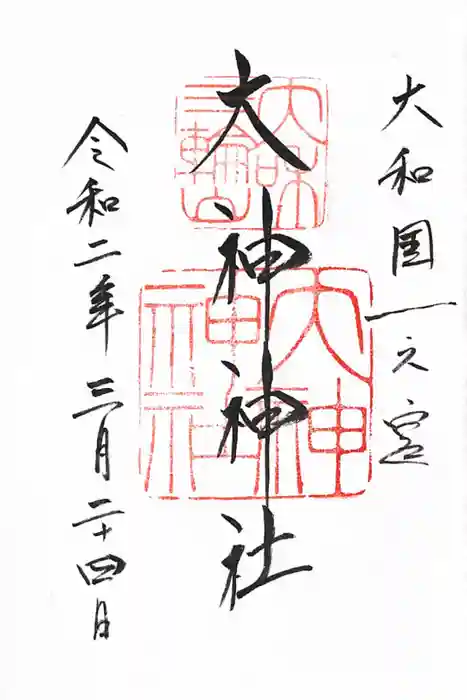 大和国一之宮
大神神社
令和二年三月二十四日
大神神社